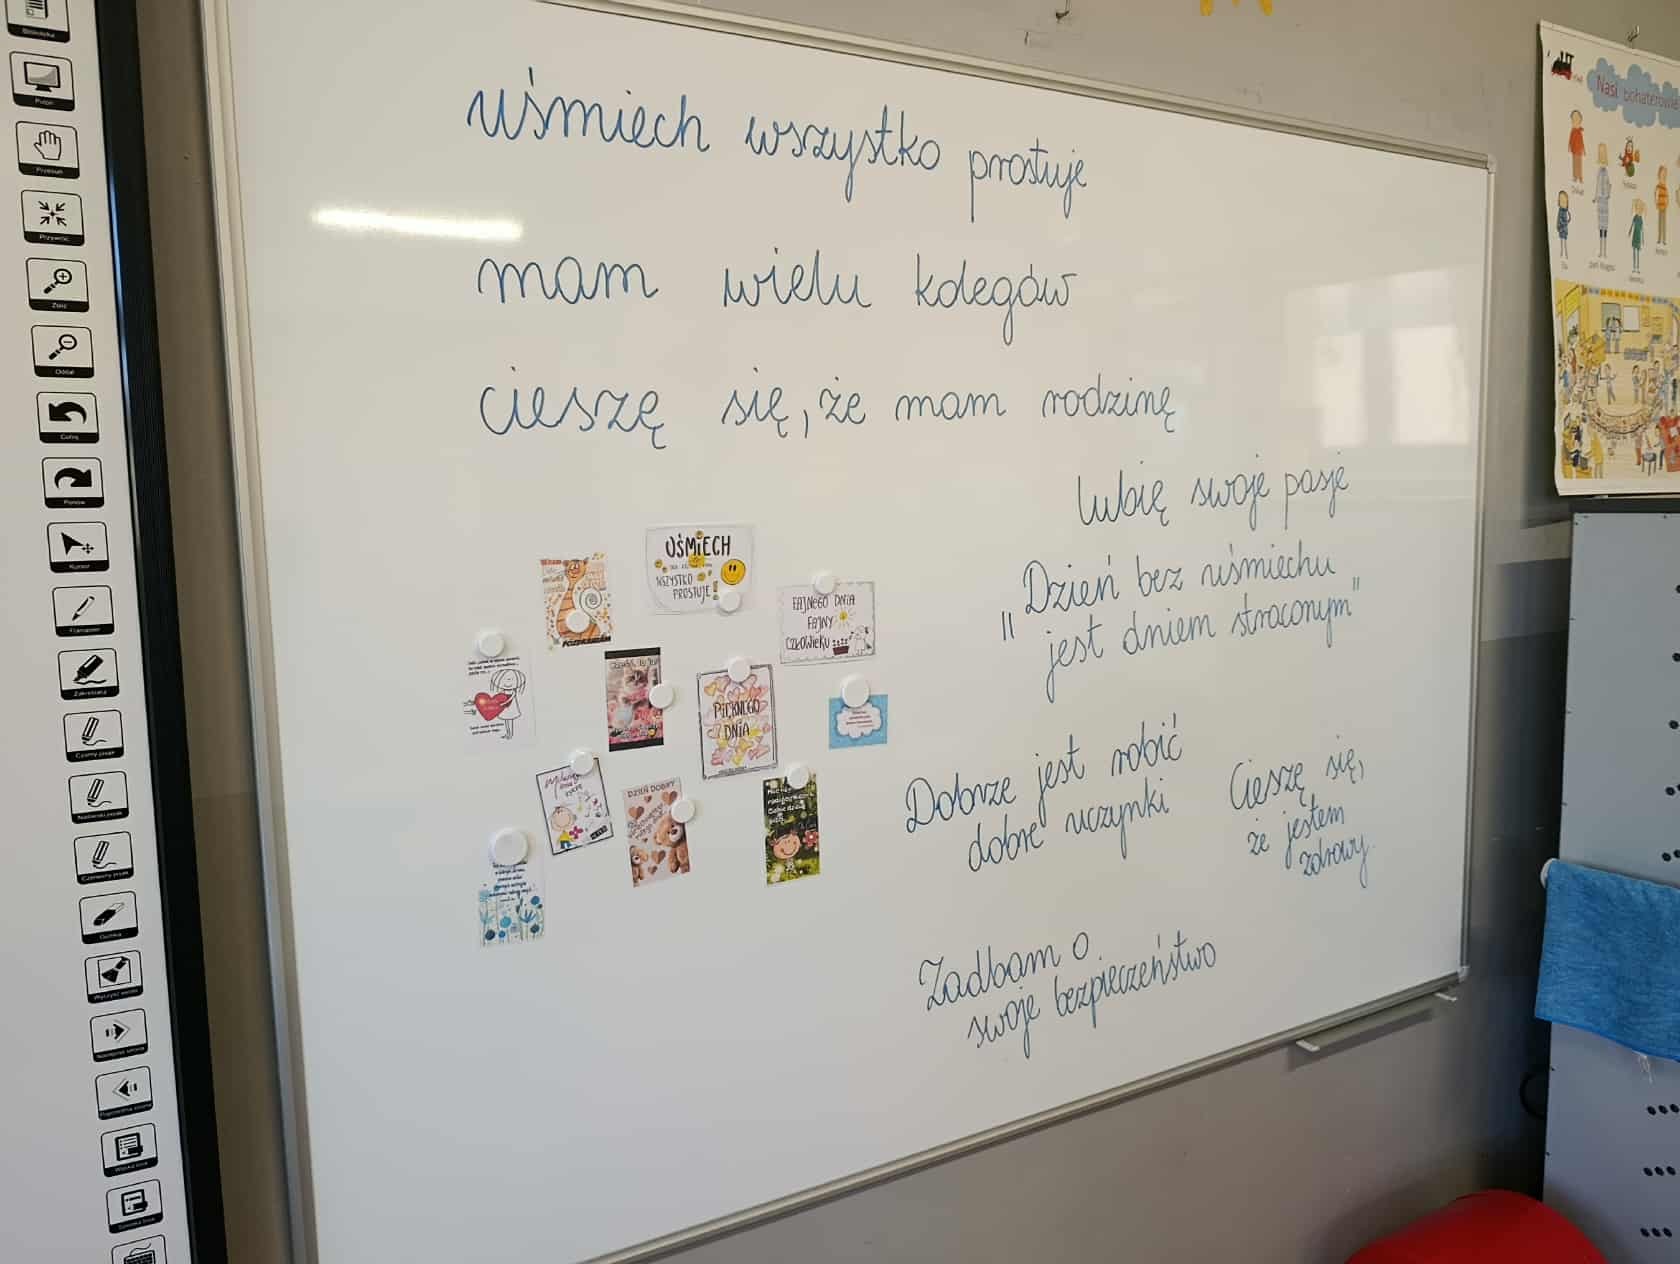 uśmiech wszystko prostuje
mam wielu kolegów
cieszę się, że mam rodzinę
lubię swoje pasje
„Dzień bez uśmiechu
jest dniem straconym"
Dobrze jest robić
dobre uczynki
Cieszę się,
że jestem
zdrowy.
Zadbam o
swoje bezpieczeństwo
UŚMIECH
WSZYSTKO
PROSTUJE!
FAJNEGO DNIA
FAJNY
CZŁOWIEKU
PIĘKNEGO
DNIA
DZIEŃ DOBRY
Nasi bohaterowie
Pulpit
Przesuń
Przywróć
Oddal
Cofnij
Ponów
Kursor
Zakreślacz
Czarny pisak
Niebieski pisak
Czerwony pisak
Gumka
Następna strona
Poprzednia strona